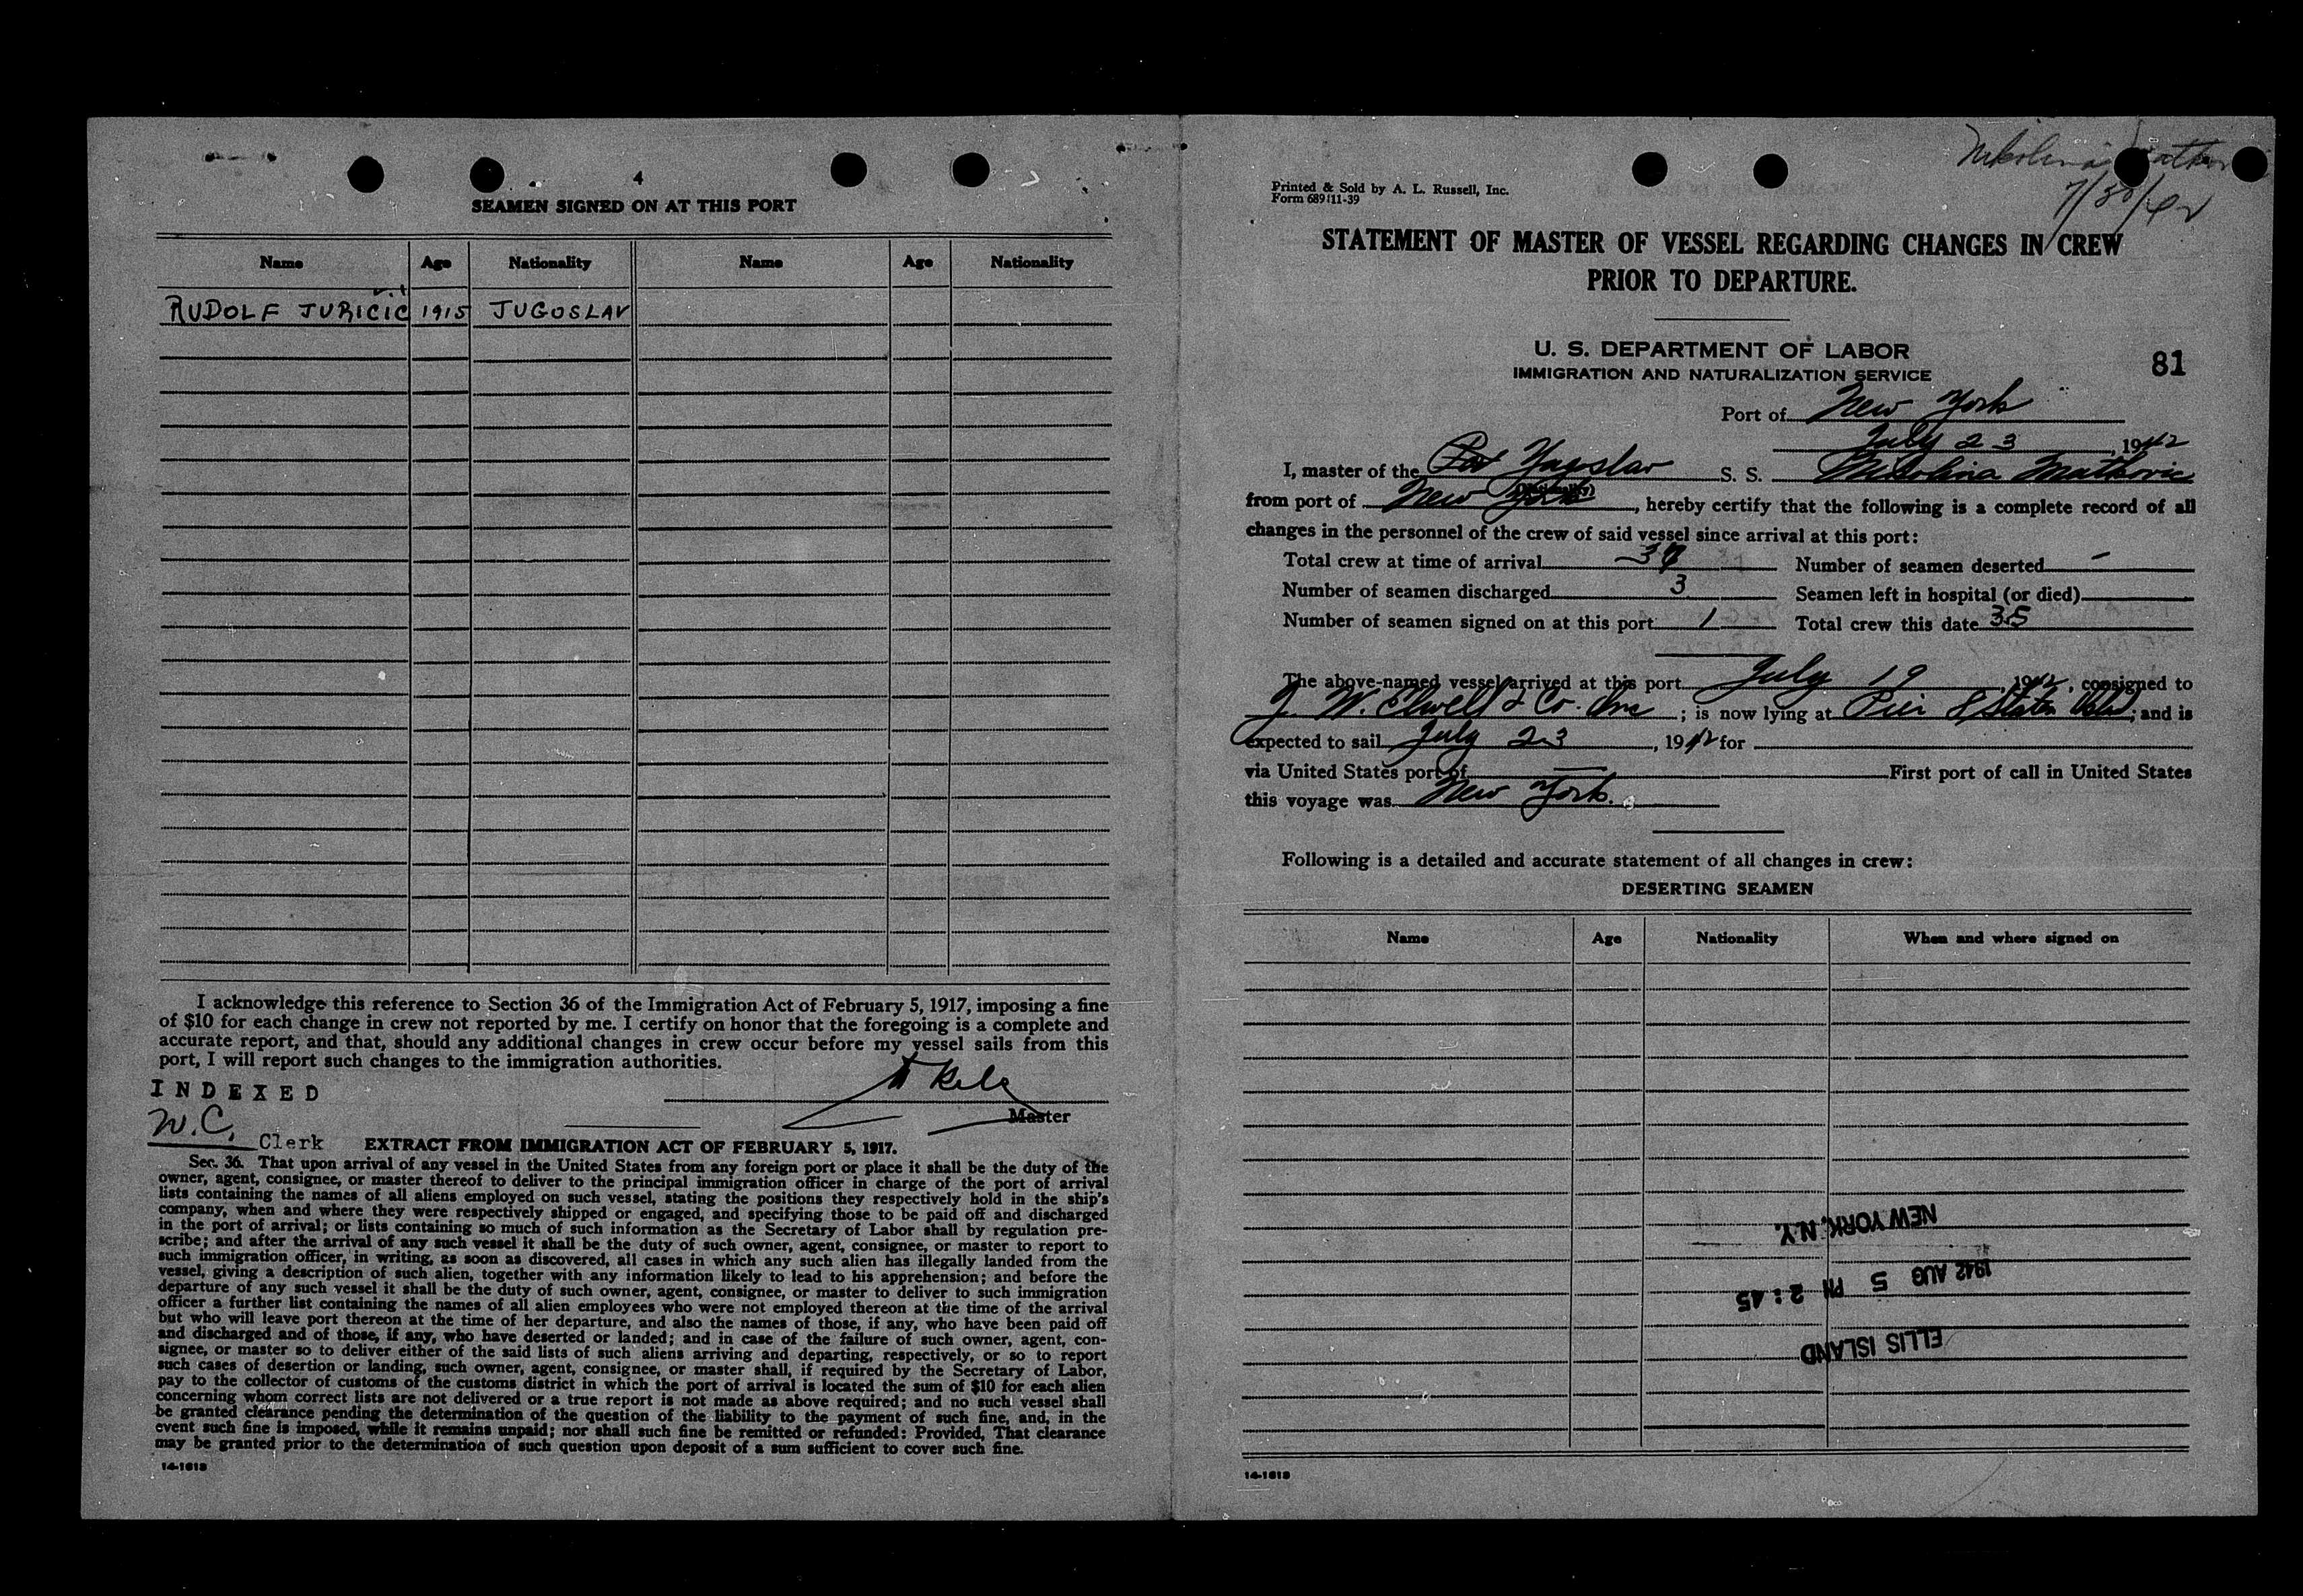 4
SEAMEN SIGNED ON AT THIS PORT
Name Age Nationality Name Age Nationality
RUDOLF JURIČIĆ 1915 JUGOSLAV
I acknowledge this reference to Section 36 of the Immigration Act of February 5, 1917, imposing a fine
of $10 for each change in crew not reported by me. I certify on honor that the foregoing is a complete and
accurate report, and that, should any additional changes in crew occur before my vessel sails from this
port, I will report such changes to the immigration authorities.
INDEXED
Master
W.C. Clerk
EXTRACT FROM IMMIGRATION ACT OF FEBRUARY 5, 1917.
Sec. 36. That upon arrival of any vessel in the United States from any foreign port or place it shall be the duty of the
owner, agent, consignee, or master thereof to deliver to the principal immigration officer in charge of the port of arrival
lists containing the names of all aliens employed on such vessel, stating the positions they respectively hold in the ship's
company, when and where they were respectively shipped or engaged, and specifying those to be paid off and discharged
in the port of arrival; or lists containing so much of such information as the Secretary of Labor shall by regulation pre-
scribe; and after the arrival of any such vessel it shall be the duty of such owner, agent, consignee, or master to report to
such immigration officer, in writing, as soon as discovered, all cases in which any such alien has illegally landed from the
vessel, giving a description of such alien, together with any information likely to lead to his apprehension; and before the
departure of any such vessel it shall be the duty of such owner, agent, consignee, or master to deliver to such immigration
officer a further list containing the names of all alien employees who were not employed thereon at the time of the arrival
but who will leave port thereon at the time of her departure, and also the names of those, if any, who have been paid off
and discharged and of those, if any, who have deserted or landed; and in case of the failure of such owner, agent, con-
signee, or master so to deliver either of the said lists of such aliens arriving and departing, respectively, or so to report
such cases of desertion or landing, such owner, agent, consignee, or master shall, if required by the Secretary of Labor,
pay to the collector of customs of the customs district in which the port of arrival is located the sum of $10 for each alien
concerning whom correct lists are not delivered or a true report is not made as above required; and no such vessel shall
be granted clearance pending the determination of the question of the liability to the payment of such fine, and, in the
event such fine is imposed, while it remains unpaid; nor shall such fine be remitted or refunded: Provided, That clearance
may be granted prior to the determination of such question upon deposit of a sum sufficient to cover such fine.
14-1613
Nikolina
7/30/42
Printed & Sold by A. L. Russell, Inc.
Form 689 11-39
STATEMENT OF MASTER OF VESSEL REGARDING CHANGES IN CREW
PRIOR TO DEPARTURE.
U. S. DEPARTMENT OF LABOR
IMMIGRATION AND NATURALIZATION SERVICE
81
Port of New York
July 23, 1942
I, master of the Yugoslav S. S. Nikolina Matkovic
from port of New York, hereby certify that the following is a complete record of all
changes in the personnel of the crew of said vessel since arrival at this port:
Total crew at time of arrival 37 Number of seamen deserted -
Number of seamen discharged 3 Seamen left in hospital (or died)
Number of seamen signed on at this port 1 Total crew this date 35
The above-named vessel arrived at this port July 19, 1942, consigned to
J. W. Elwell & Co. Inc; is now lying at Pier 8 Staten Isld; and is
expected to sail July 23, 1942 for
via United States port of — First port of call in United States
this voyage was New York.
Following is a detailed and accurate statement of all changes in crew:
DESERTING SEAMEN
Name Age Nationality When and where signed on
ELLIS ISLAND
1942 AUG 5 PM 2:45
NEW YORK, N.Y.
14-1613